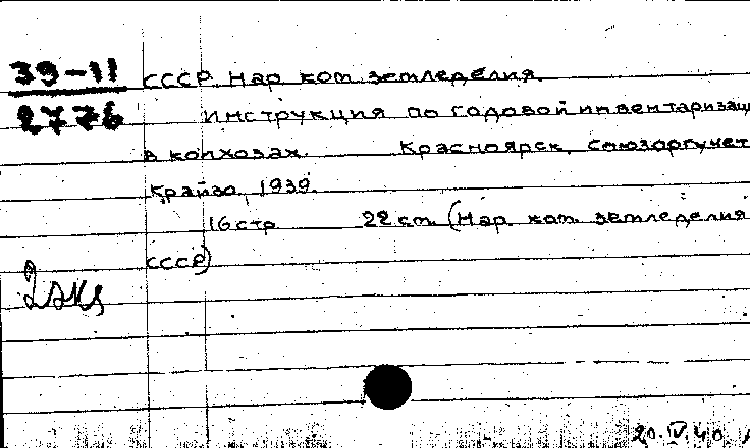 39-11
2776
СССР Нар ком. земледелия.
Инструкция по годовой инвентаризац
в колхозах. Красноярск, Союзоргучет
Крайзо, 1939.
16 стр 22 см. (Нар. ком. земледелия
СССР)
2 экз
20.IV.40.